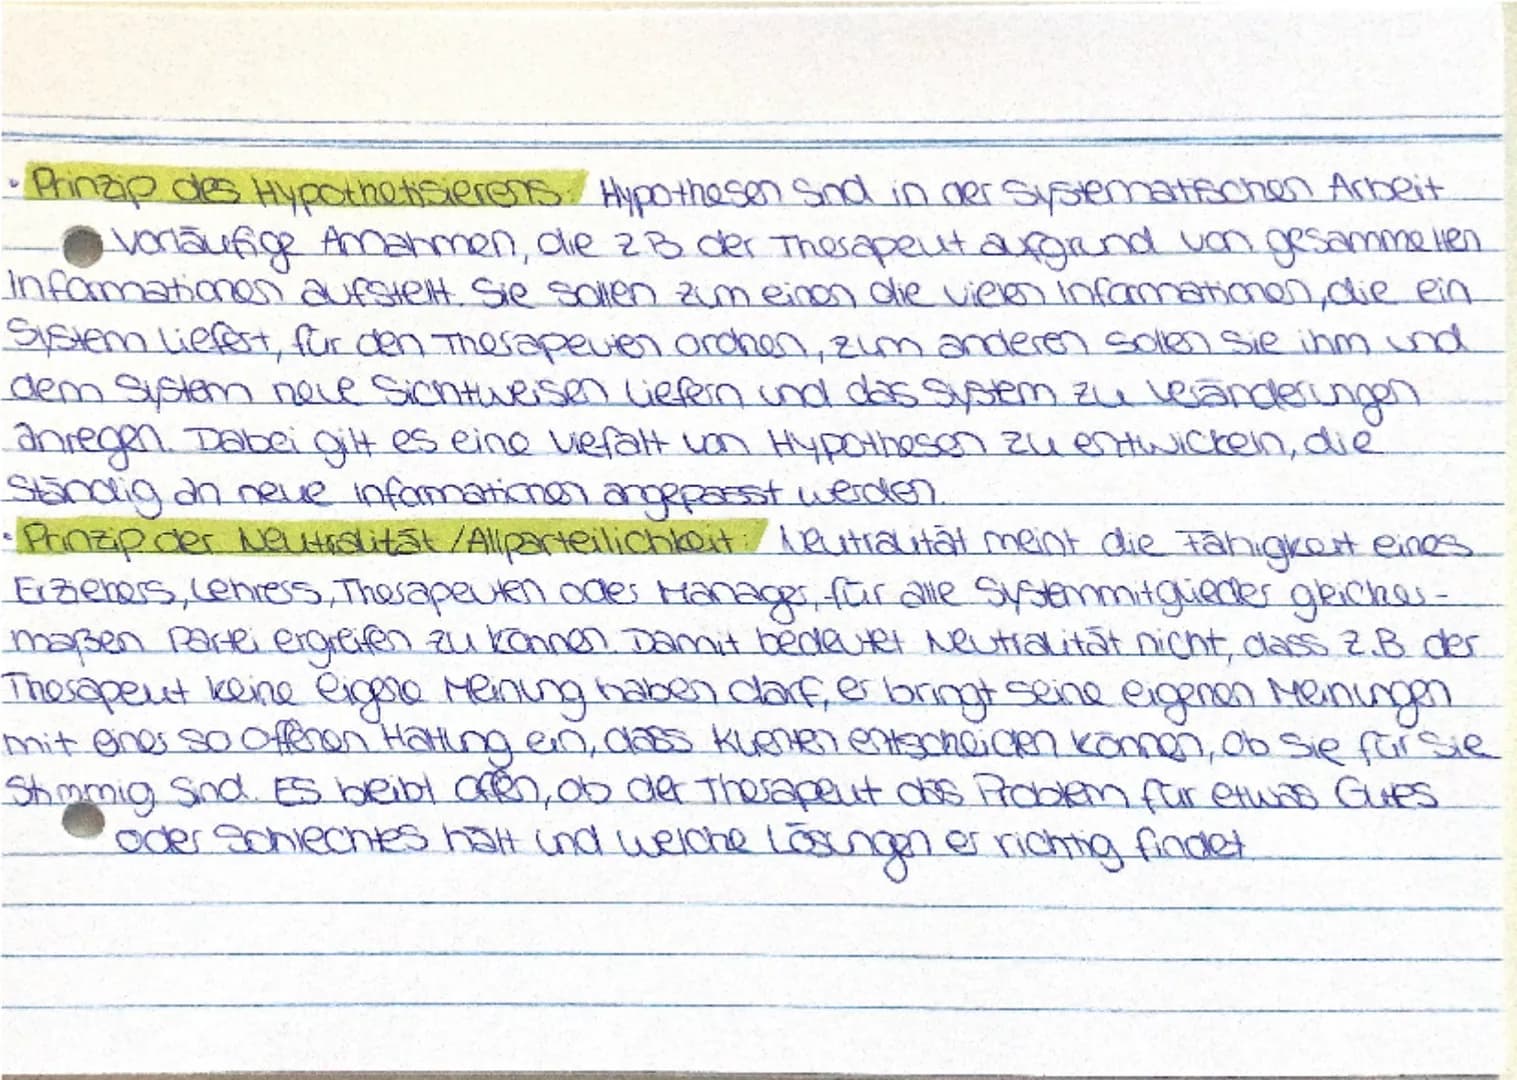 · Prinzip des Hypothetisierens: Hypothesen sind in der systematischen Arbeit
vorläufige Annahmen, die z.B der Therapeut aufgrund von gesammelten
Informationen aufstellt. Sie sollen zum einen die vielen Informationen, die ein
System liefert, für den Therapeuten ordnen, zum anderen sollen sie ihm und
dem System neue Sichtweisen liefern und das System zu Veränderungen
anregen. Dabei gilt es eine Vielfalt von Hypothesen zu entwickeln, die
ständig an neue Informationen angepasst werden.
· Prinzip der Neutralität /Allparteilichkeit: Neutralität meint die Fähigkeit eines
Erziehers, Lehrers, Therapeuten oder Manager, für alle Systemmitglieder gleicher-
maßen Partei ergreifen zu können. Damit bedeutet Neutralität nicht, dass z.B. der
Therapeut keine eigene Meinung haben darf, er bringt seine eigenen Meinungen
mit einer so offenen Haltung ein, dass Klienten entscheiden können, ob sie für sie
stimmig sind. Es beibt offen, ob der Therapeut das Problem für etwas Gutes
oder Schlechtes hält und welche Lösungen er richtig findet